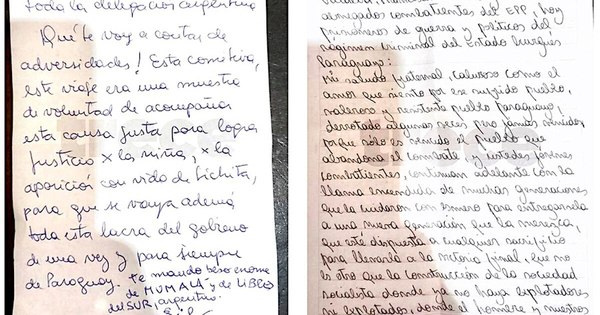 toda la delegación argentina
Qué te voy a contar de
adversidades! Esta comitiva,
este viaje era una muestra
de voluntad de acompañar
esta causa justa para lograr
Justicia x la niña, x la
aparición con vida de Lichita,
para que se vaya además
toda esta lacra del gobierno
de una vez y para siempre
de Paraguay. te mando beso enorme
de MUMALÁ y de LIBRES
del SUR, argentina.
abnegados combatientes del EPP, hoy
prisioneros de guerra y políticos del
régimen criminal del Estado burgués
paraguayo:
Mi saludo fraternal, caluroso como el
amor que siento por ese sufrido pueblo,
valeroso y resistente pueblo paraguayo,
derrotado algunas veces pero jamás vencido,
porque sólo es vencido el pueblo que
abandona el combate y ustedes férreos
combatientes, continúan adelante con la
llama encendida de muchas generaciones
que la cuidaron con esmero para entregarla
a una nueva generación que la merezca,
que esté dispuesta a cualquier sacrificio
para llevarla a la victoria final, que no
es otro que la construcción de la sociedad
socialista donde ya no haya explotadores
ni explotados, donde el hombre y nuestros